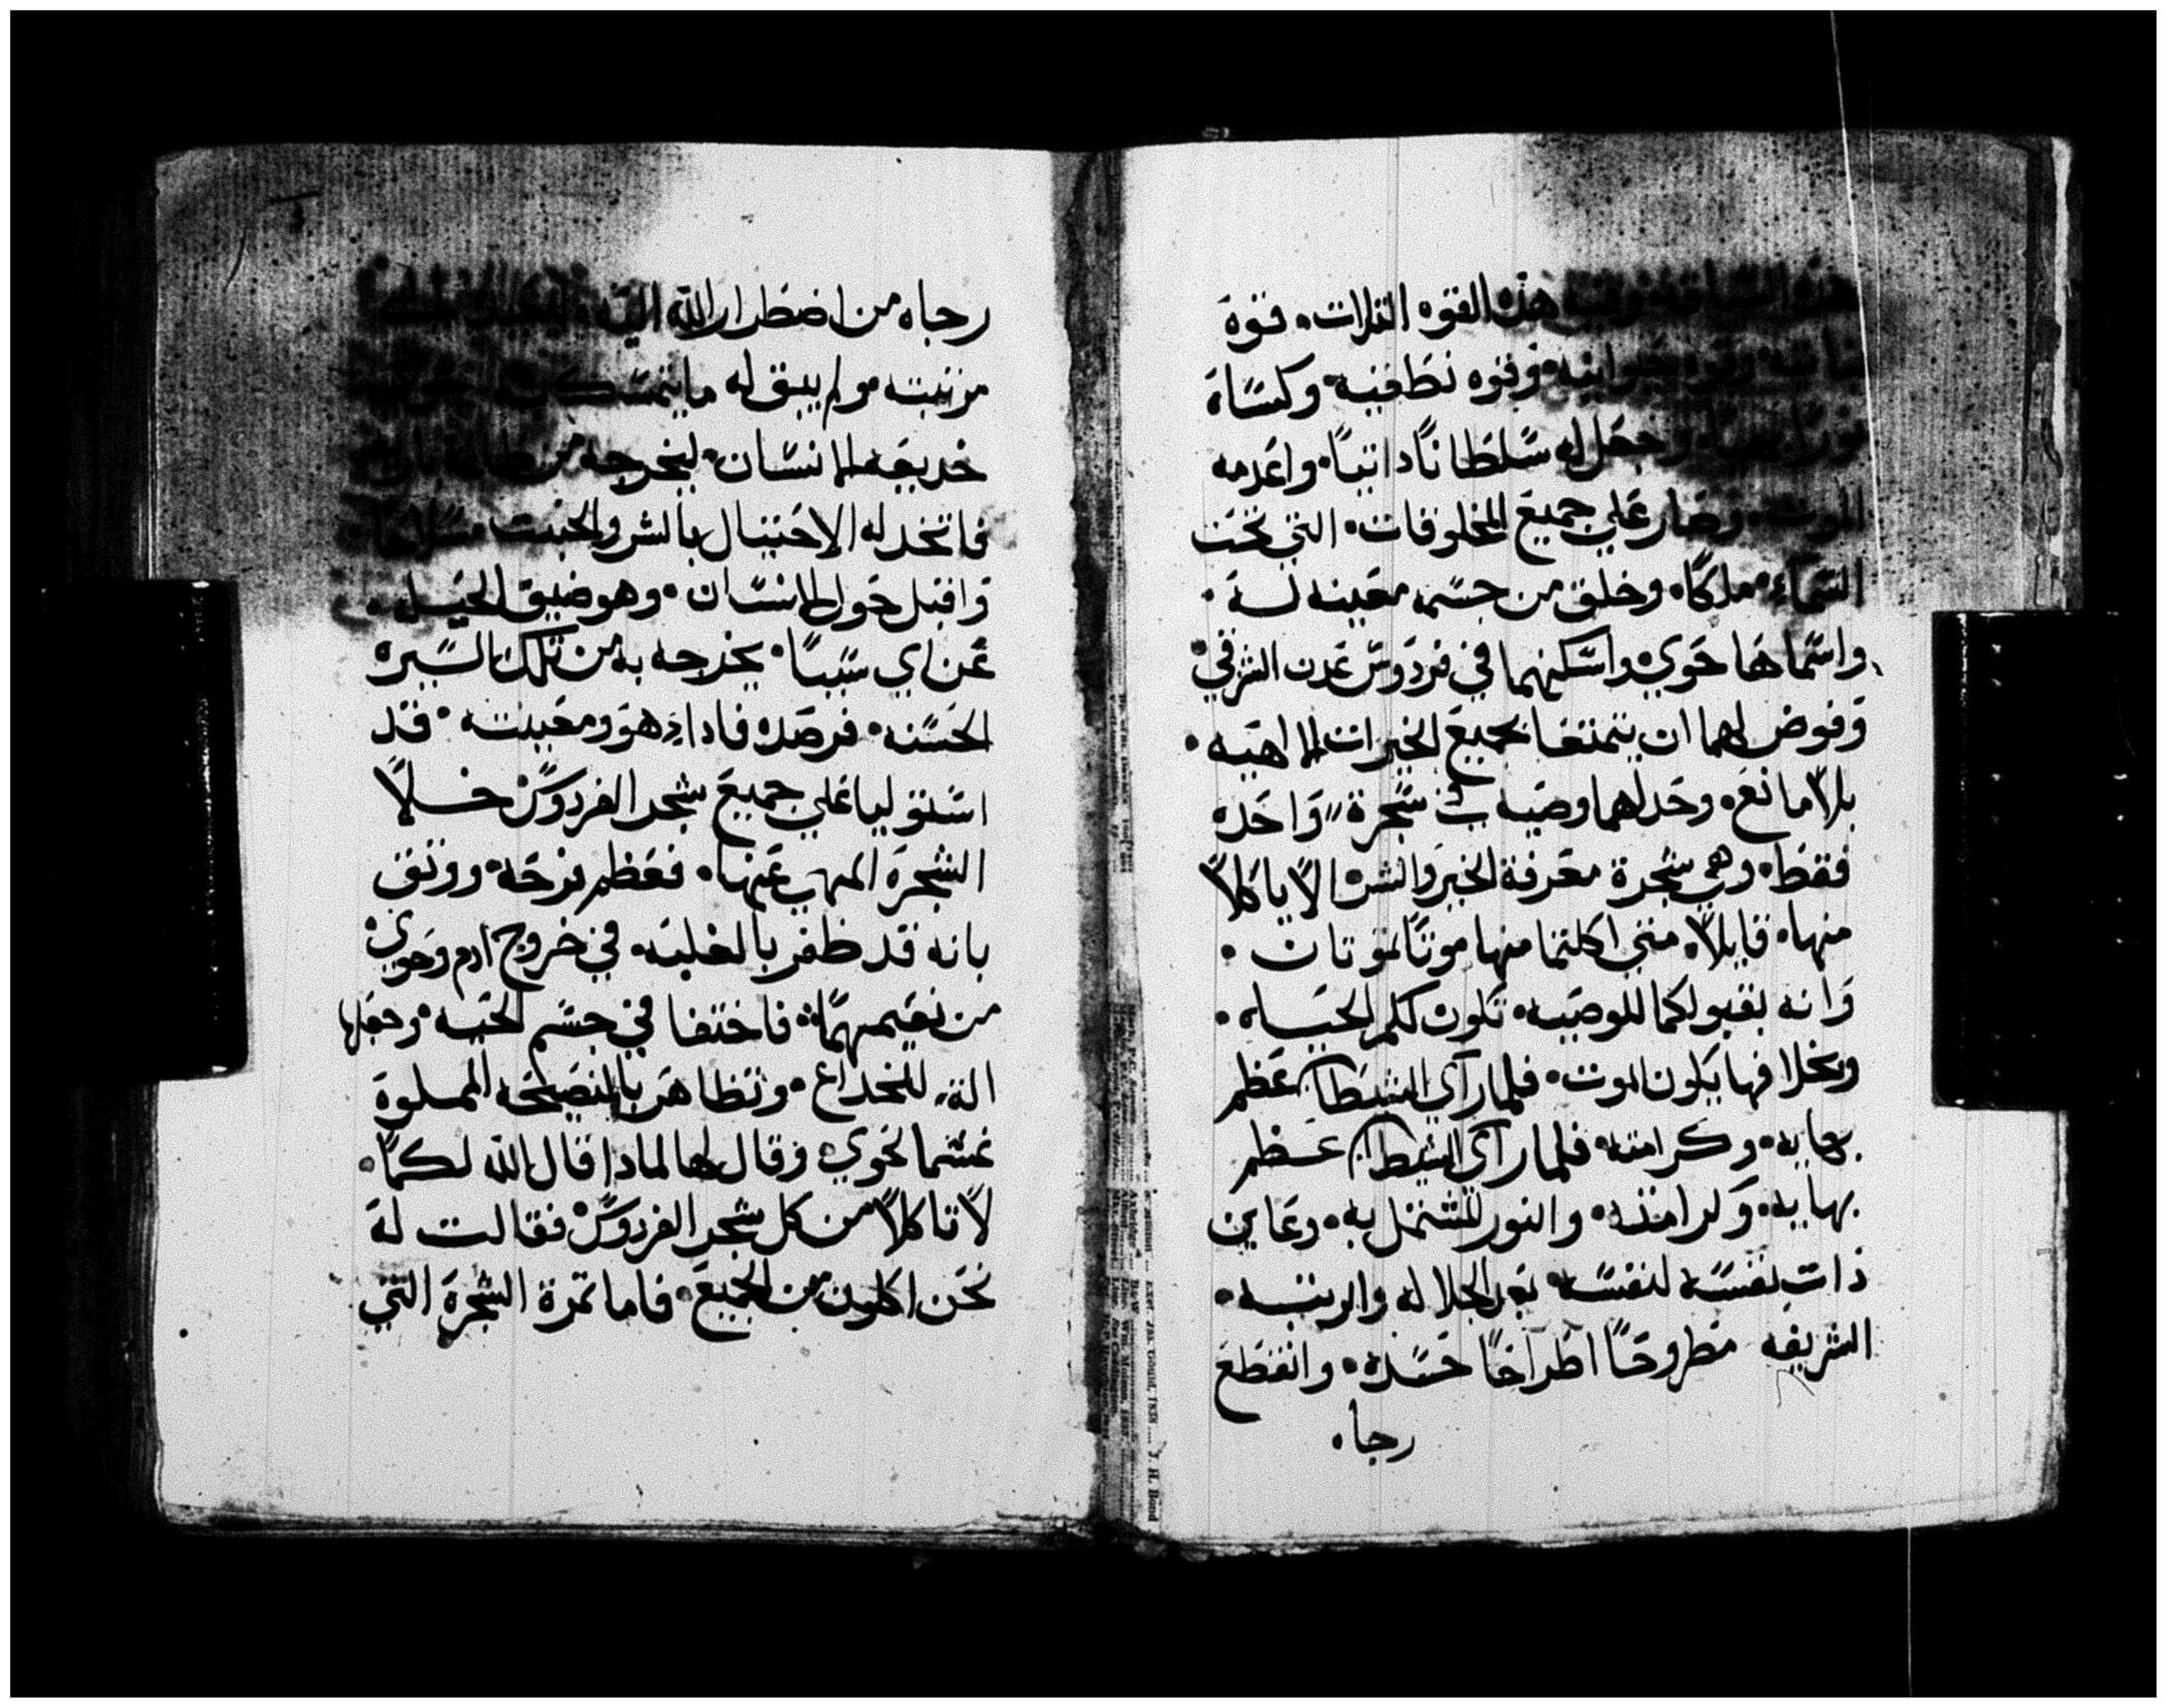 هذه القوه التلات. قوة
وقوه نطقيه. وكسَاة
وجعَل له سَلطَانًا داتيًا. واعَدمه
الموت. وصَار عَلي جميعَ المخلوقات. التي تحَت
السَمَاءِ. ملكًا. وخلق من جسَمه معَينه لـه.
واسَماهَا حَوي. واسَكنهما في فردَوسَ عَدن الشرقي
وَفوض لهما ان يتمتعَا بجميعَ الخيرات الالاهيه.
بلا مانعَ. وحَد لهما وصَيه في شَجرة وَاحَده
فقطَ. وهي شجرة معَرفة الخير والشر. الا ياكلا
منها. قايلا. متي اكلتما منها موتًا تموتان.
وَانه بقبولكما للوصَيه. تكون لكم الحيَاه.
وبخلافها يكون الموت. فلما رآي الشيطَان عَظم
بهايه. وكرامته. فلما رآي الشيطان عَـظم
بهايه. وَكرامته. والنور المشتمل به. وعَاين
ذات نفسَه لنفسَه. بعَد الجلاله والرتبـه.
الشريفه مطَروحًا اطَراحًا حَسَده. وانقطَعَ
رجاه
رجاه من اضطَرار الله اليه.
مرتبته. ولم يبق له ما يتمسَك به
خديعَه الانسَان. ليخرجه من
فاتخد له الاحَتيال بالشر والخبت سَلاحًا
وَاقبل حَول الانسَان. وهو ضيق الحَيـل.
عَن اي سَببًا. يخرجه به من تلك السَيره
الحَسَنه. فرصَده فادا ادم هوَ ومعَينته. قد
اسَتوليا عَلي جميعَ شجر الفردوسَ خـلا
الشجرة المنهي عَنها. فعَظم فرحَه. ووتق
بانه قد ظفر بالغلبه. في خروج ادم وحَوي
من نعَيمهمَا. فاختفا في جسَم الحَيه. وجعَلها
الة للخداع. وتظاهَر بالنصَيحَه المملوة
غشما لحَوي. وقال لها لمادا قال الله لـكمَا.
لا تاكلا من كل شجر الفردوسَ. فقالت لهَ
نحَن اكلون من الجميعَ. فاما تمرة الشجرة التي